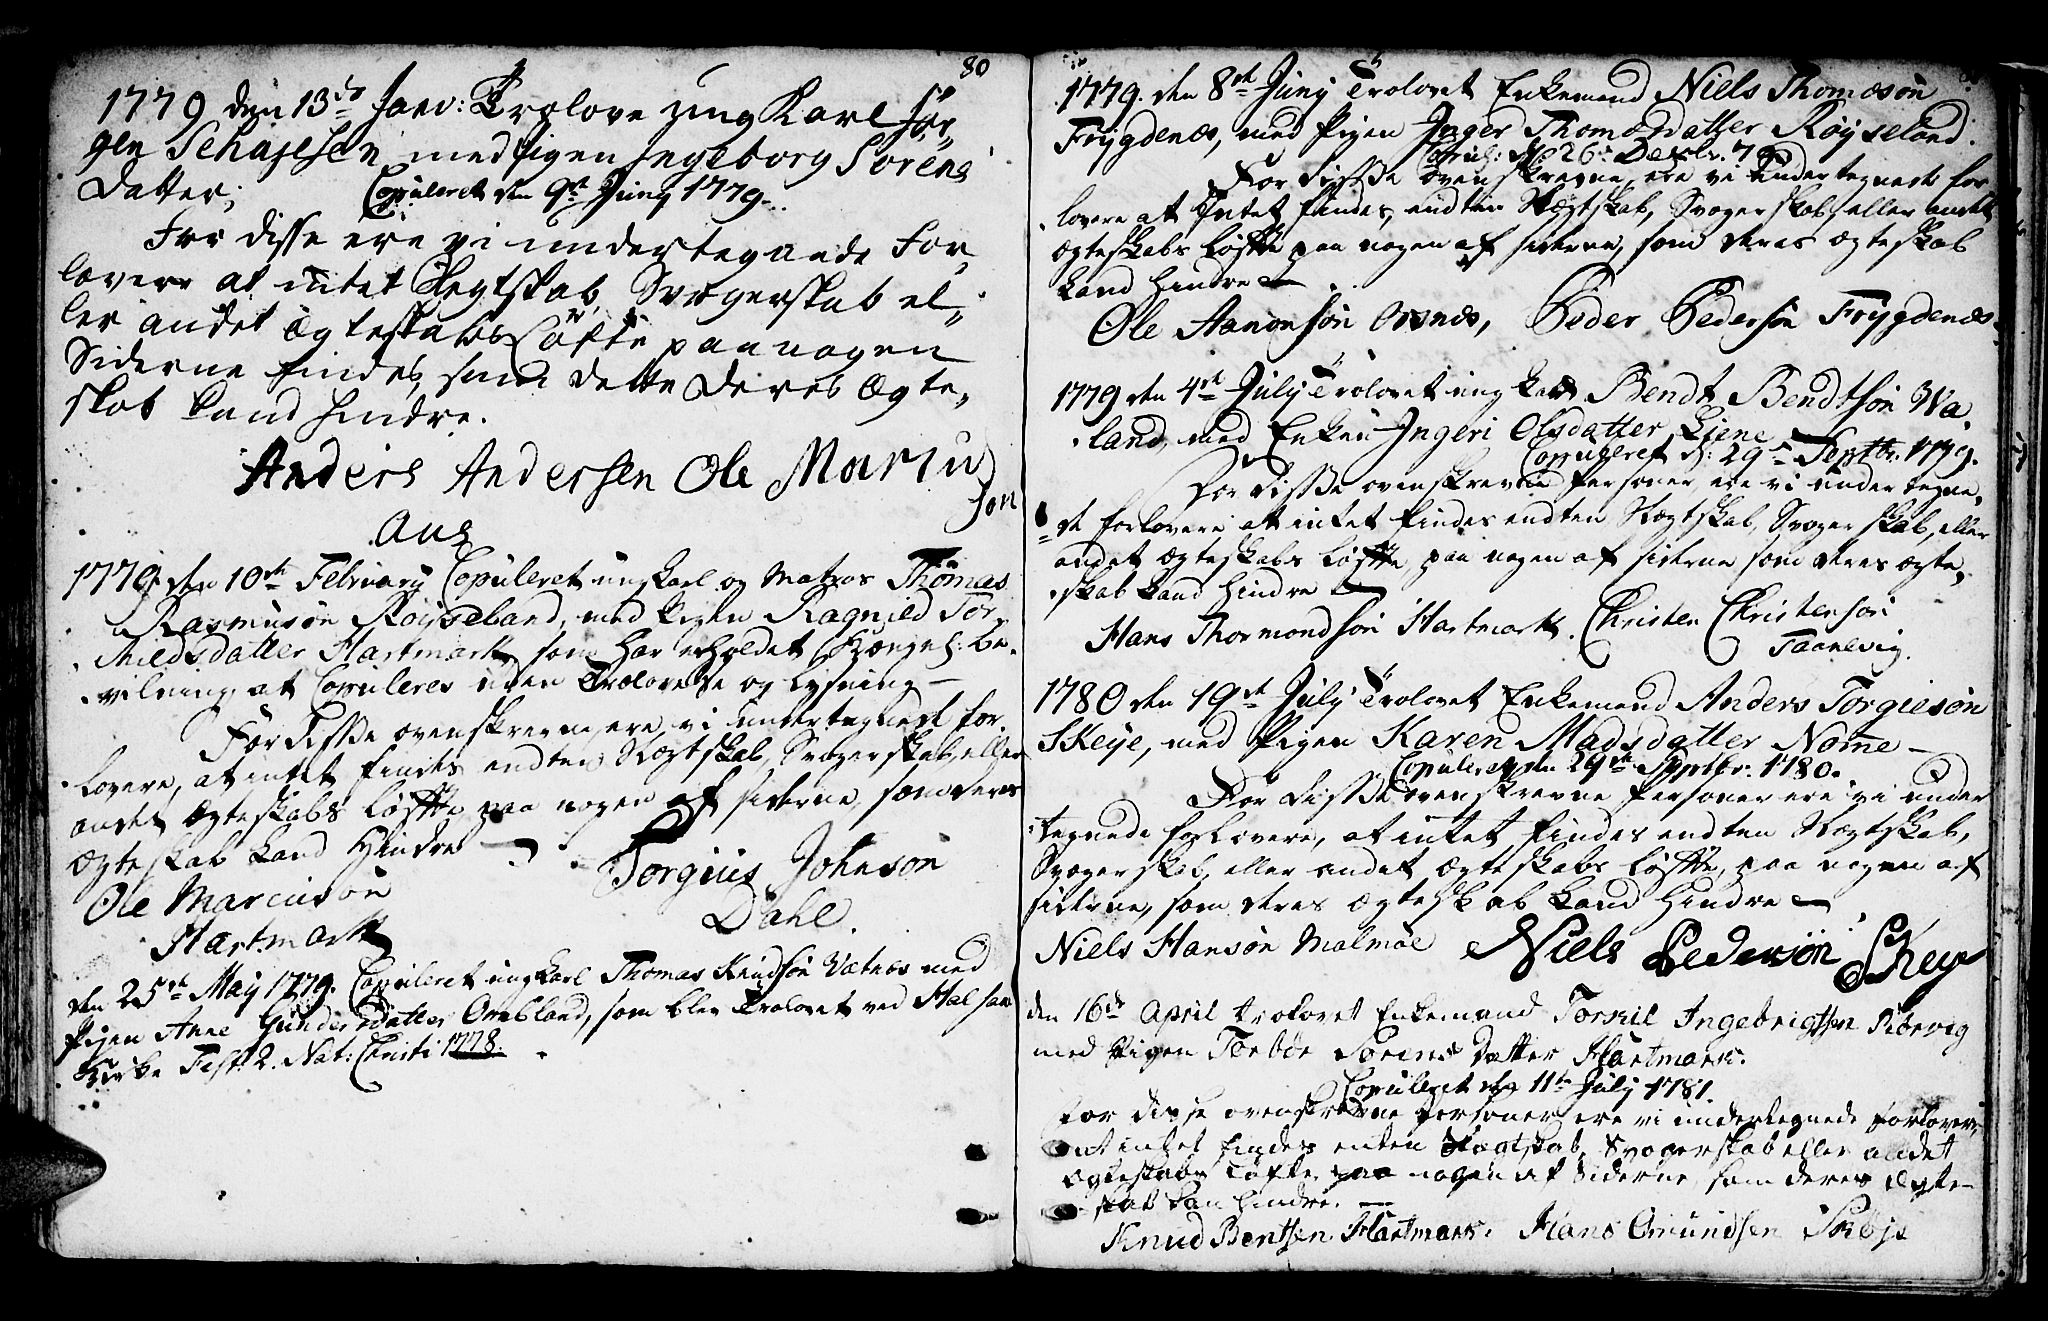 80
1779 den 13de Janv: Trolove ung Karl Jør„
gen Schajesen med Pigen Ingeborg Sørens
Datter;
Copuleret den 9de Juny 1779.
For disse ere vi undertegnede For„
lovere at intet Slegtskab, Svogerskab el„
ler andet Ægteskabs Løfte paa nogen
Siderne findes, som dette deres Ægte„
skab kand hindre.
Anders Andersen Ole Marcu
sen
Aus
1779 den 10de February Copuleret ungkarl og Matros Thomas
Rasmusøn Røyseland, med Pigen Ragnild Tor„
kieldsdatter Hartmark som har erholdet Kongel: be„
vilning at Copuleres uden Trolovelse og Lysning —
For disse ovenskrevne ere vi undertegnede for„
lovere, at intet findes endten Slægtskab, Svogerskab eller
andet Ægteskabs Løfte paa nogen af siderne, som deres
Ægteskab kand Hindre —
Ole Marcusøn
Hartmark
Torgius Johnsøn
Dahl.
den 25de May 1779. Copuleret ungkarl Thomas Knudsøn Vatnæs med
Pigen Anne Gundersdatter Ombland, som blev Trolovet ved Halsaae
Kirke Fest. 2. Nat: Christi 1778.
1779. den 8de Juny Trolovet Enkemand Niels Thomæsøn
Frygdenæs, med Pigen Inger Thomæsdatter Røyseland.
Copul: d: 26de Decbr. 79
For disse ovenskrevne, ere vi undertegnede for„
lovere at Intet findes, endten Slægtskab, Svogerskab eller andet
Ægteskabs Løfte paa nogen af siderne, som deres Ægteskab
kand Hindre —
Ole Aanonsøn Osnæs, Peder Pedersøn Frygdenæs
1779 den 4de July Trolovet ung karl Bendt Bendtsøn Wa„
land, med Enken Ingeri Olsdatter Eiene
Copuleret d: 29de Septbr. 1779.
For disse ovenskrevne Personer, ere vi undertegne„
de forlovere, at intet findes endten Slægtskab, Svogerskab, eller
andet Ægteskabs Løfte paa nogen af siderne, som deres Ægte„
skab kand hindre —
Hans Thormondsøn Hartmark. Christen Christensøn
Taanevig.
1780 den 19de July Trolovet Enkemand Anders Torgiesøn
Skeye, med Pigen Karen Madsdatter Nome —
Copuleret den 29de Septbr. 1780.
For disse ovenskrevne Personer ere vi under
tegnede forlovere, at intet findes endten Slægtskab,
Svogerskab, eller andet Ægteskabs Løfte, paa nogen af
siderne, som deres Ægteskab kand Hindre —
Niels Hansøn Malmöe Niels Pedersøn Skeye
den 16de April trolovet Enkemand Torkil Ingebrigtsen
med Pigen Torbor Sørens Datter Hartmark.
Copuleret den 11te July 1781.
for disse ovenskrevne Personer ere vi undertegnede forlover„
at intet findes enten Slægtskab, Svogerskab eller andet
Ægteskabs Løfte paa nogen af Siderne, som deres Ægte-
skab kan hindre. —
Knud Bentsen Hartmark. Hans Omundsen Skøje